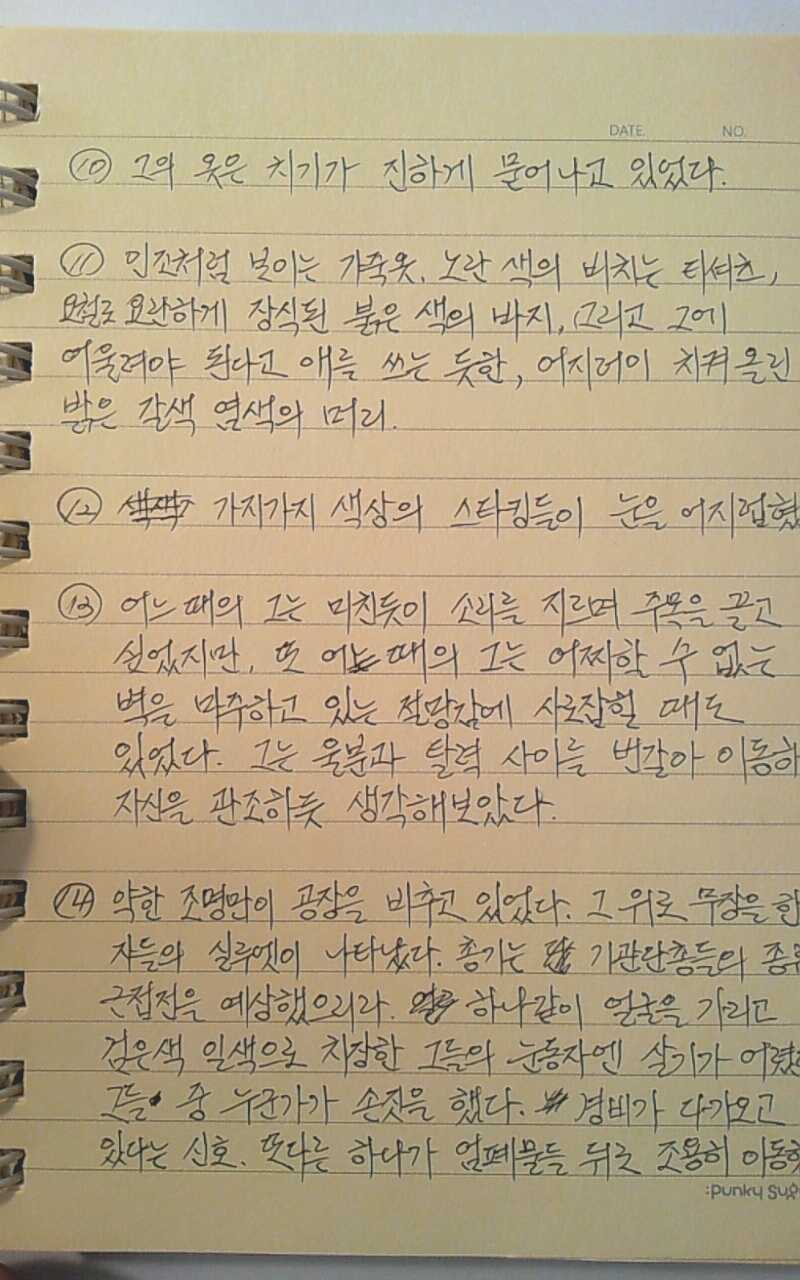 DATE. NO.
⑩ 그의 옷은 치기가 진하게 묻어나고 있었다.
⑪ 인조처럼 보이는 가죽옷. 노란 색의 비치는 티셔츠,
요철로 요란하게 장식된 붉은 색의 바지, 그리고 그에
어울려야 된다고 애를 쓰는 듯한, 어지러이 치켜올린
밝은 갈색 염색의 머리.
⑫ 가지가지 색상의 스타킹들이 눈을 어지럽혔
⑬ 어느 때의 그는 미친듯이 소리를 지르며 주목을 끌고
싶었지만, 또 어느 때의 그는 어찌할 수 없는
벽을 마주하고 있는 절망감에 사로잡힐 때도
있었다. 그는 울분과 탈력 사이를 번갈아 이동하
자신을 관조하듯 생각해보았다.
⑭ 약한 조명만이 공장을 비추고 있었다. 그 위로 무장을 한
자들의 실루엣이 나타났다. 총기는 기관단총들의 종류
근접전을 예상했으리라. 하나같이 얼굴을 가리고
검은색 일색으로 치장한 그들의 눈동자엔 살기가 어렸
그들 중 누군가가 손짓을 했다. 경비가 다가오고
있다는 신호. 또다른 하나가 엄폐물들 뒤로 조용히 이동하
:punky su